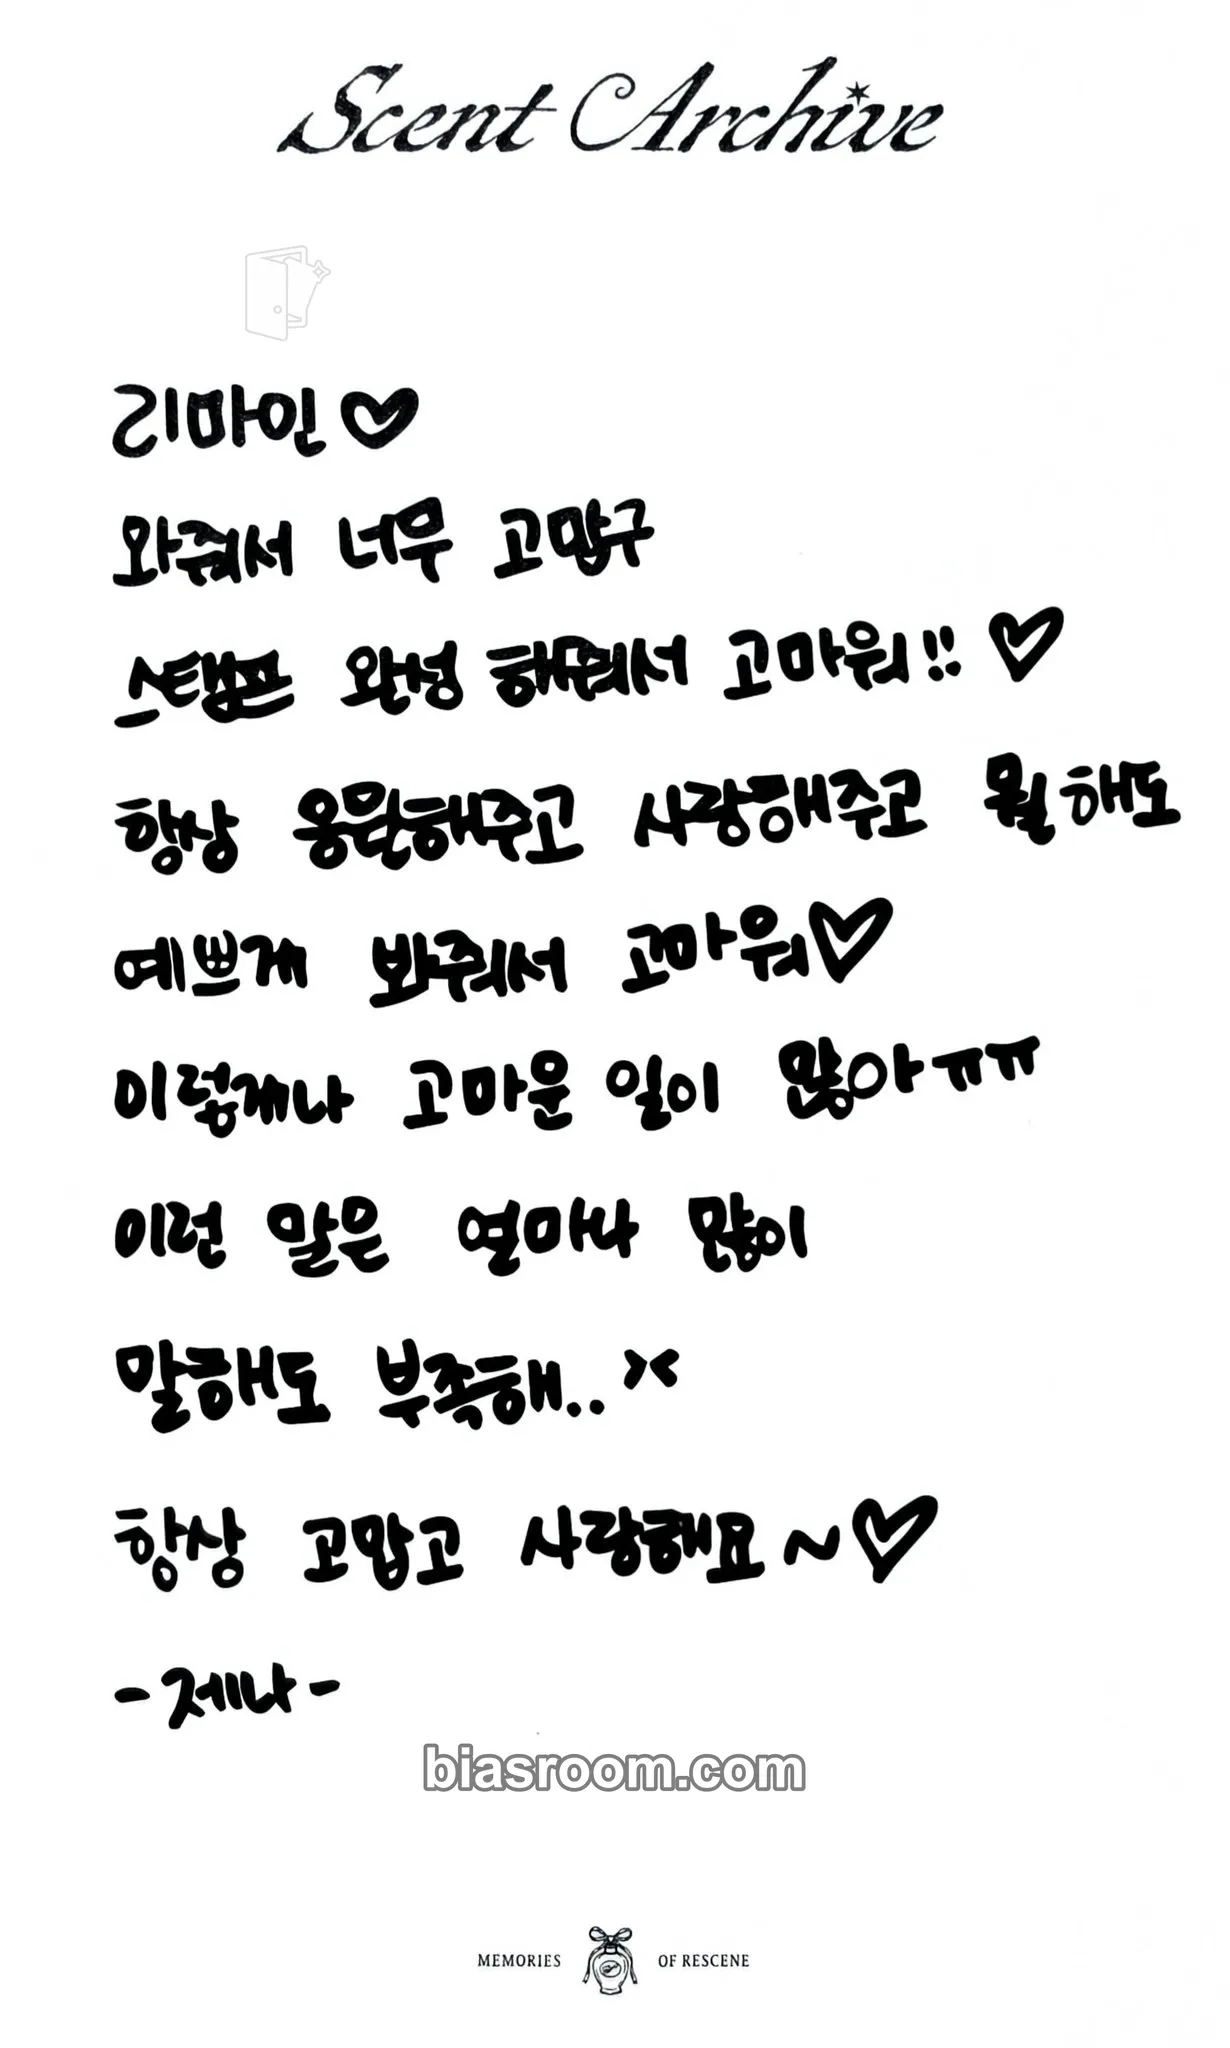 Scent Archive
리마인♡
와줘서 너무 고맙구
스탬프 완성 해줘서 고마워!! ♡
항상 응원해주고 사랑해주고 뭘 해도
예쁘게 봐줘서 고마워♡
이렇게나 고마운 일이 많아ㅠㅠ
이런 말은 얼마나 많이
말해도 부족해..><
항상 고맙고 사랑해요~♡
-제나-
biasroom.com
MEMORIES OF RESCENE